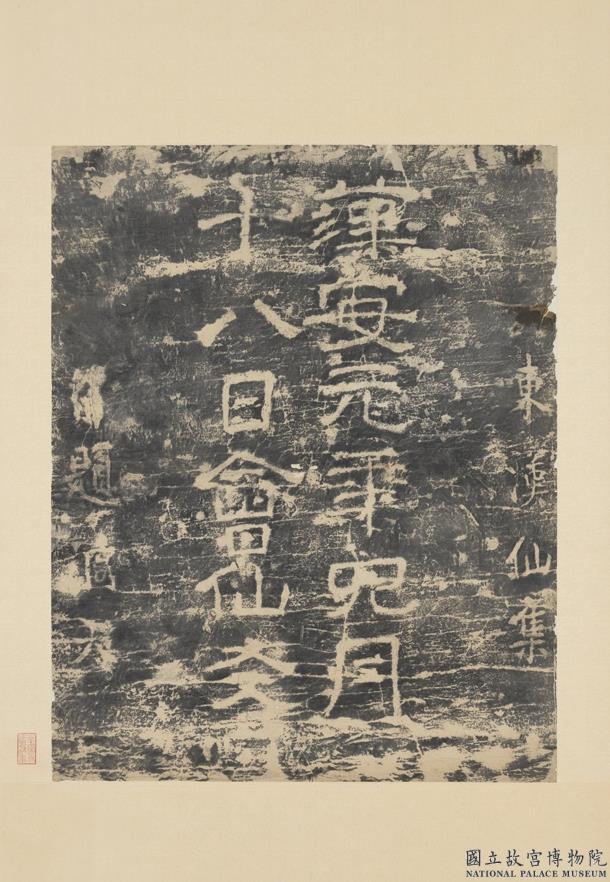 東漢仙集
漢安元年四月
十八日會仙友
題
國立故宮博物院
NATIONAL PALACE MUSEUM